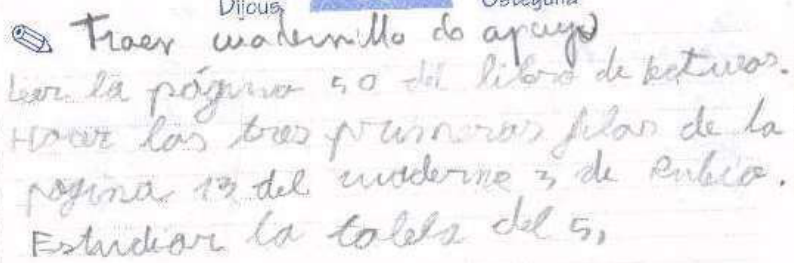 Dijous Osteguna
Traer cuadernillo de apoyo
Leer la página 50 del libro de lecturas.
Hacer las tres primeras filas de la
página 13 del cuaderno 3 de Rubio.
Estudiar la tabla del 5,